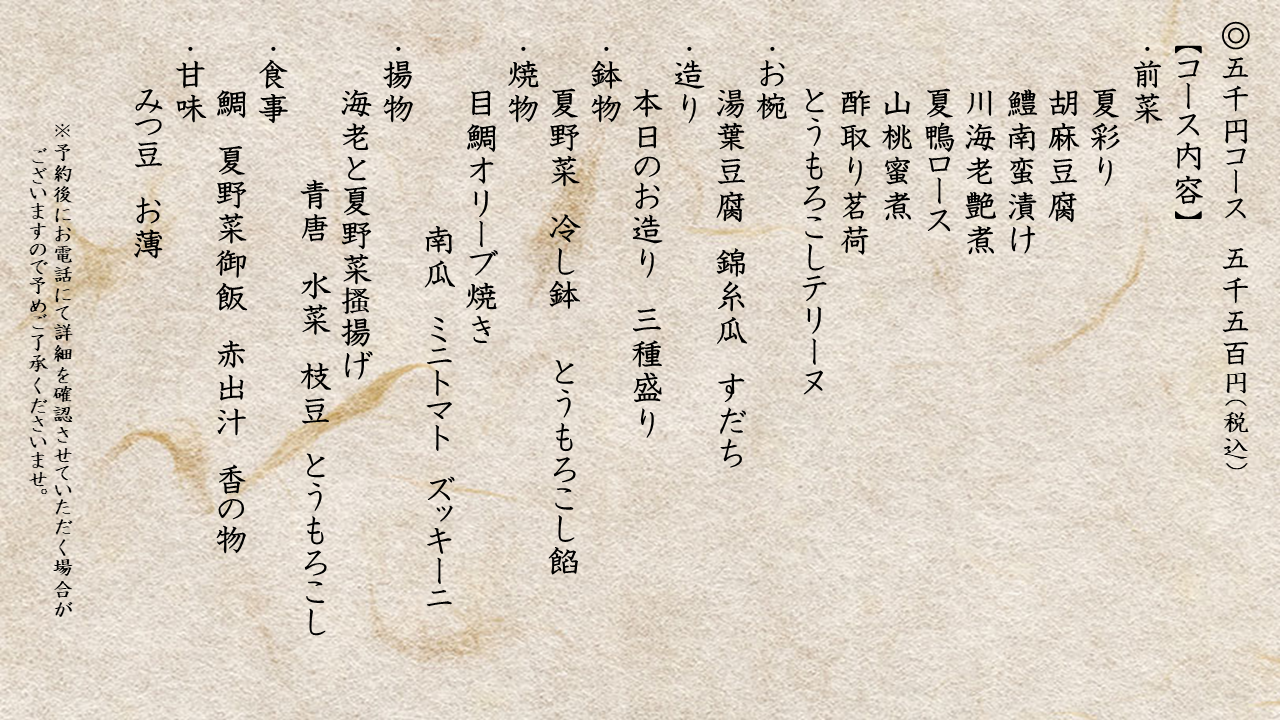 ◎五千円コース　五千五百円（税込）
【コース内容】
・前菜
夏彩り
胡麻豆腐
鱧南蛮漬け
川海老艶煮
夏鴨ロース
山桃蜜煮
酢取り茗荷
とうもろこしテリーヌ
・お椀
湯葉豆腐　錦糸瓜　すだち
・造り
本日のお造り　三種盛り
・鉢物
夏野菜　冷し鉢　とうもろこし餡
・焼物
目鯛オリーブ焼き
南瓜　ミニトマト　ズッキーニ
・揚物
海老と夏野菜搔揚げ
青唐　水菜　枝豆　とうもろこし
・食事
鯛　夏野菜御飯　赤出汁　香の物
・甘味
みつ豆　お薄
※予約後にお電話にて詳細を確認させていただく場合が
ございますので予めご了承くださいませ。